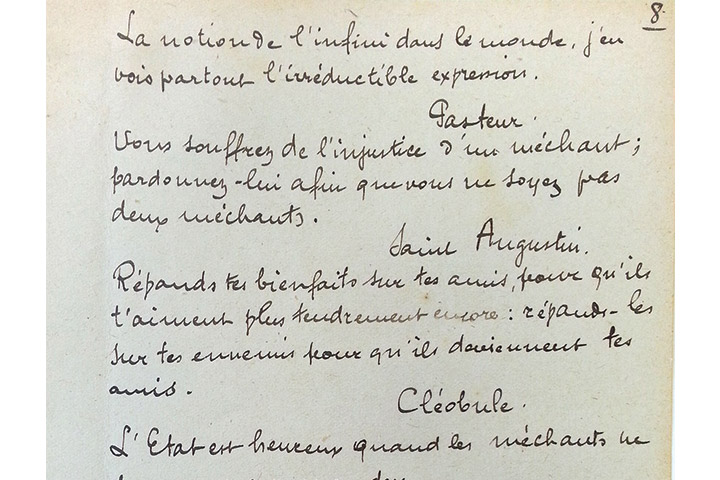 8.
La notion de l'infini dans le monde, j'en
vois partout l'irréductible expression.
Pasteur.
Vous souffrez de l'injustice d'un méchant;
pardonnez-lui afin que vous ne soyez pas
deux méchants.
Saint Augustin.
Répands tes bienfaits sur tes amis, pour qu'ils
t'aiment plus tendrement encore: répands-les
sur tes ennemis pour qu'ils deviennent tes
amis.
Cléobule.
L'Etat est heureux quand les méchants ne